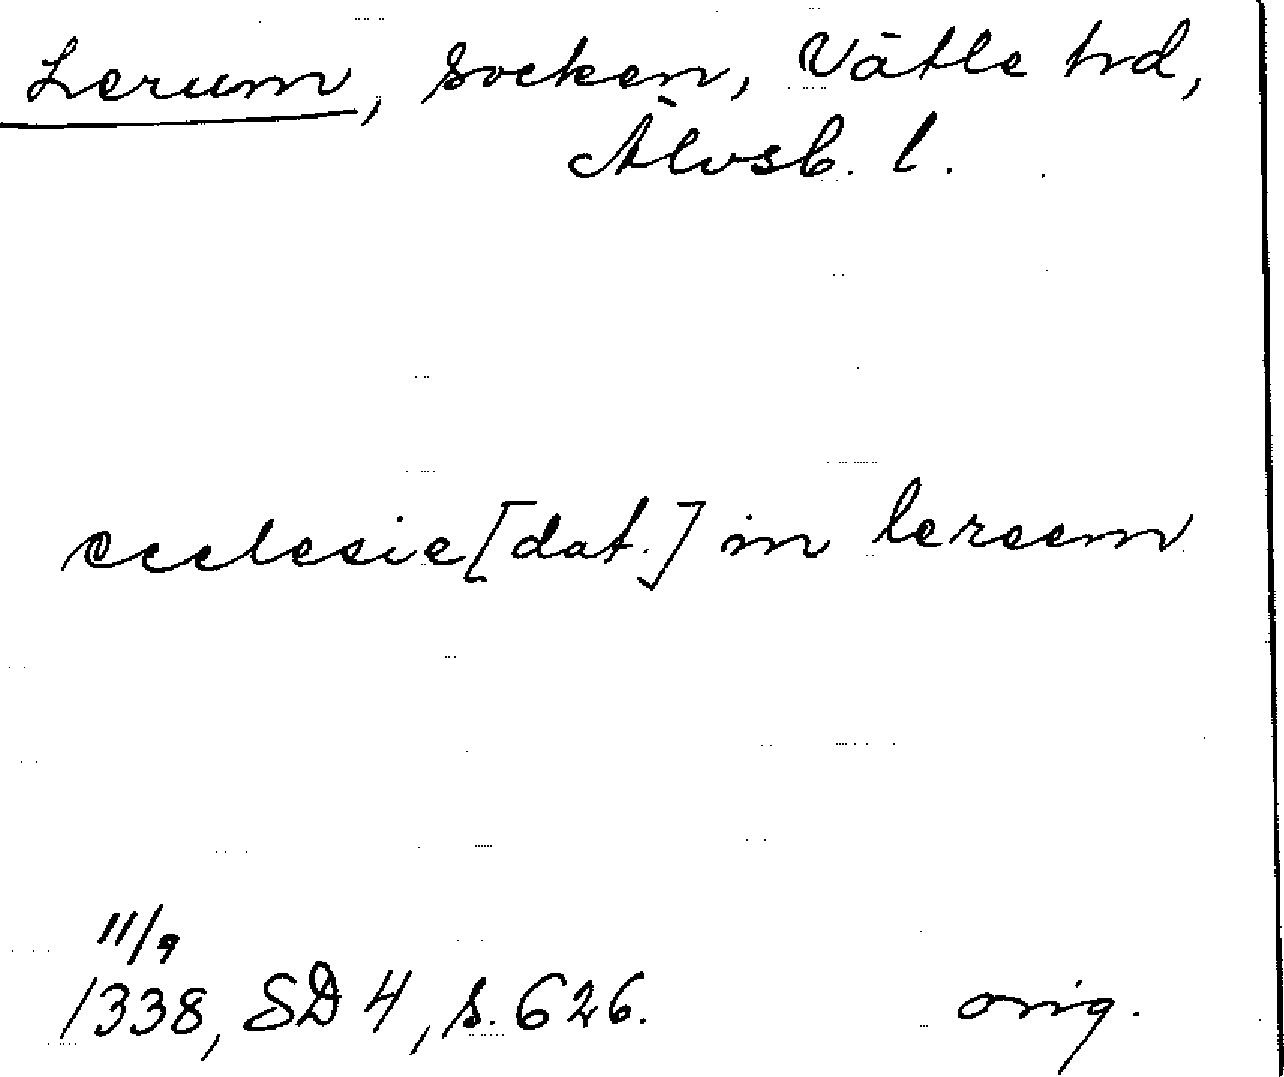 Lerum, socken, Vätle hd,
Älvsb. l.
ecclesie [dat.] in lereem
11/9
1338, SD 4, s. 626. orig.